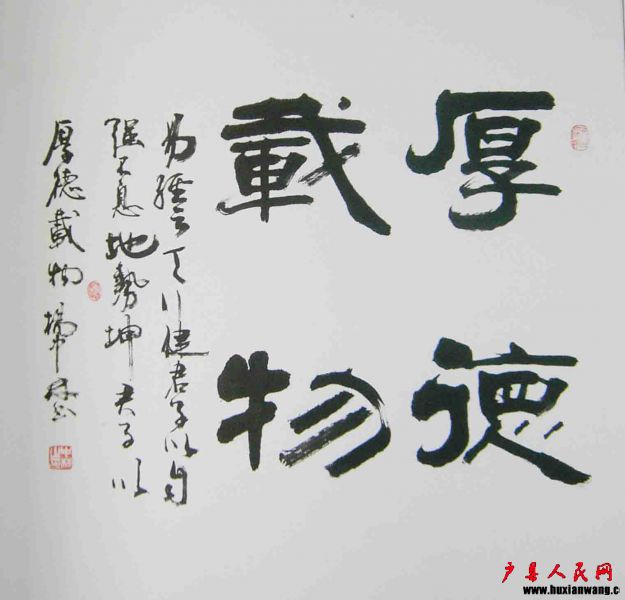 厚德
載物
易經云天行健君子以自
强不息地勢坤君子以
厚德載物
户县人民网
www.huxianwang.c